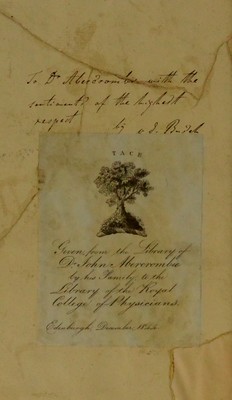 To Dr Abercrombie with the
sentiments of the highest
respect
by
TACE
Given from the Library of
Dr John Abercrombie
by his Family to the
Library of the Royal
College of Physicians.
Edinburgh December